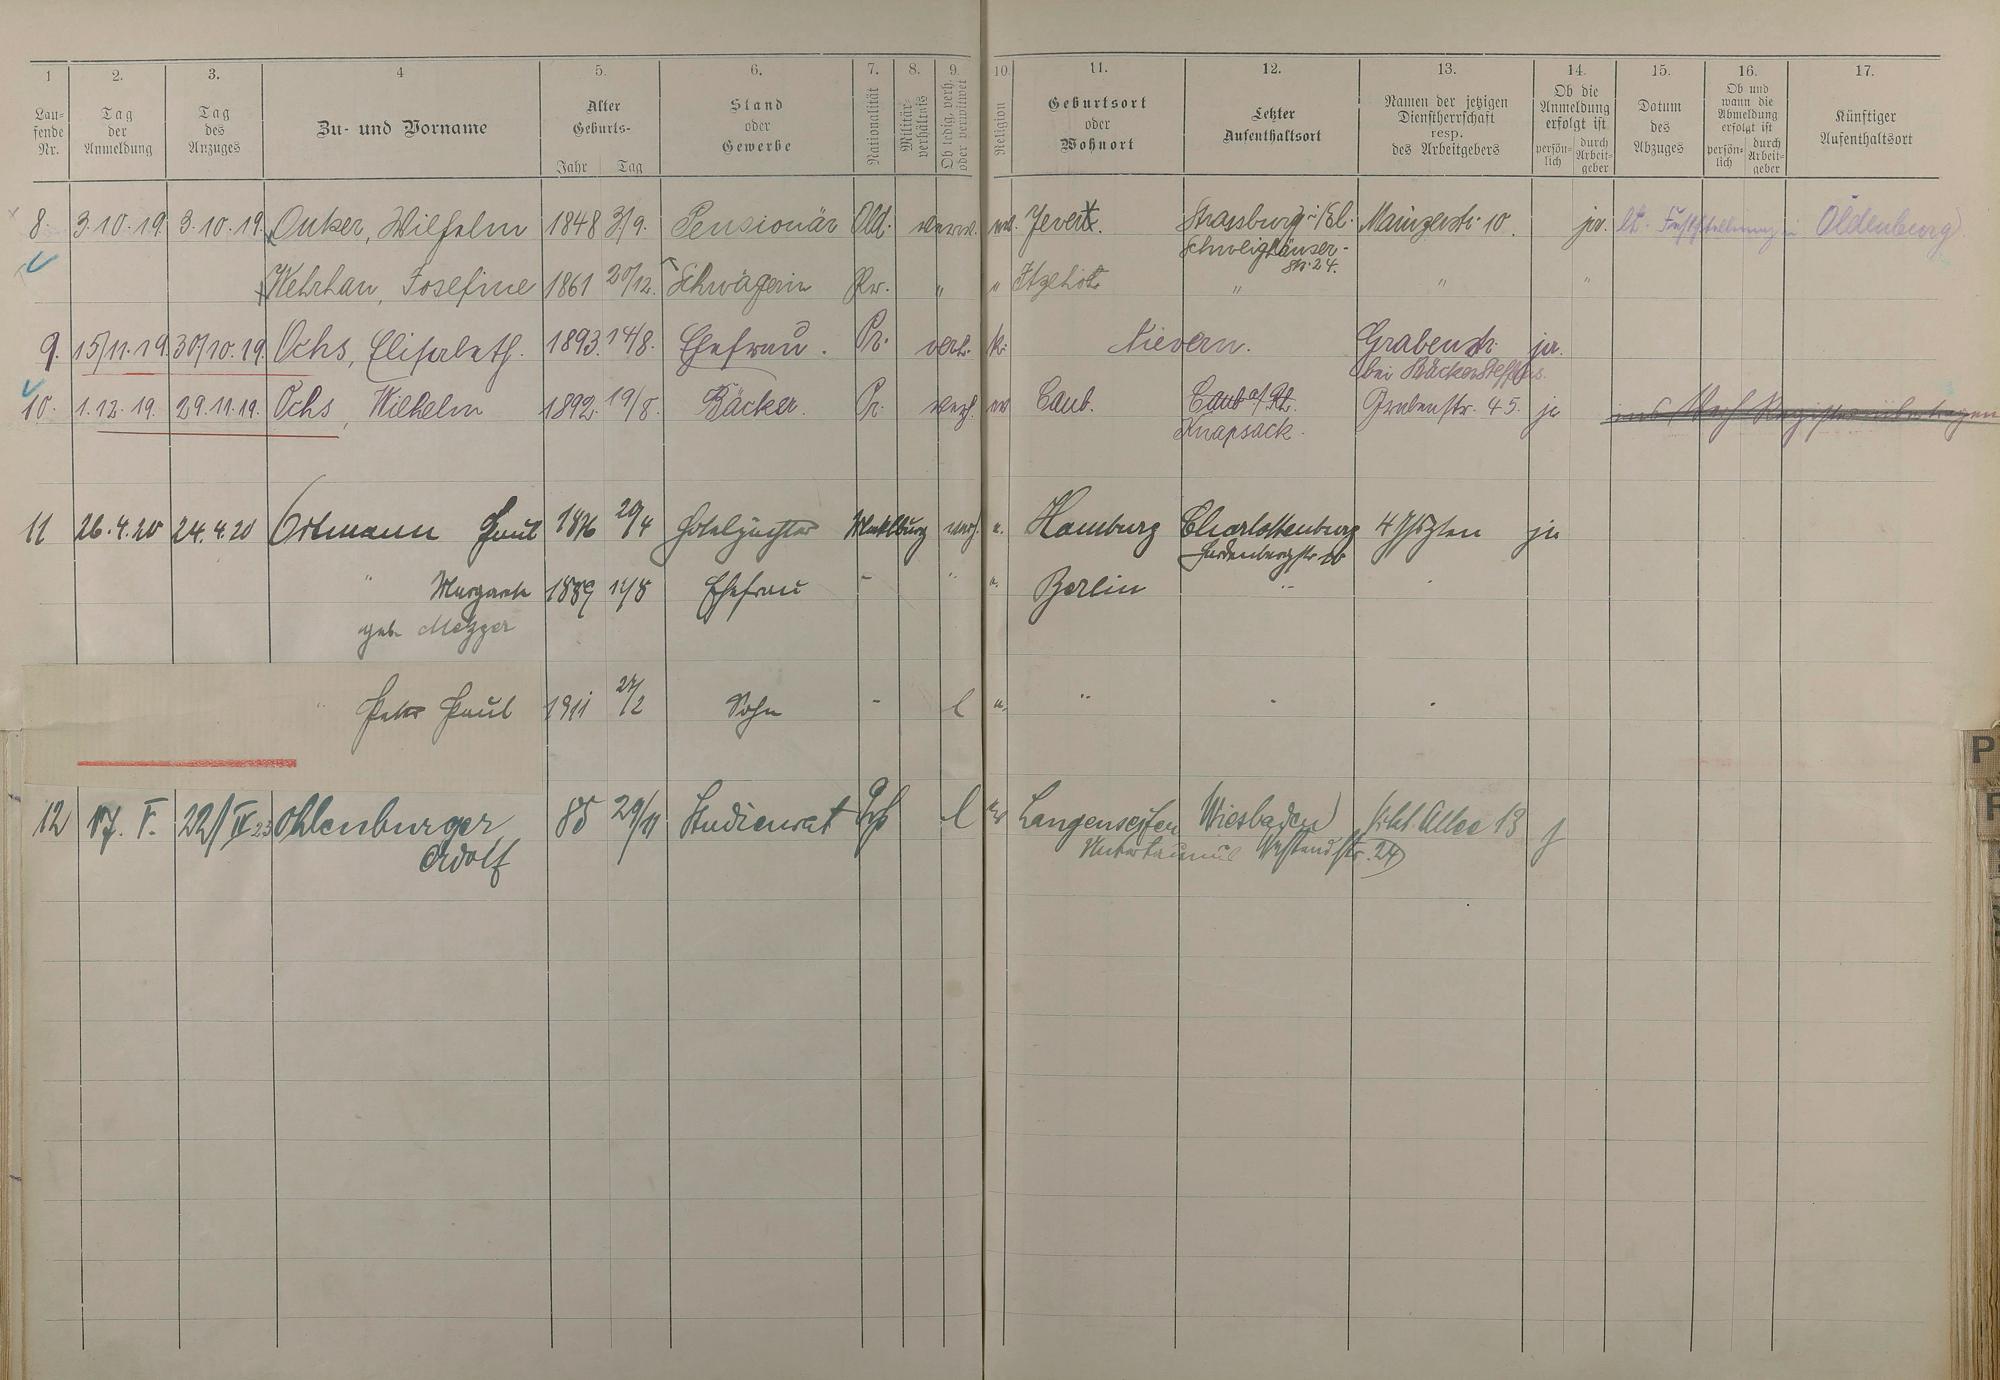 1 2. 3. 4 5. 6. 7. 8. 9. 10. 11. 12. 13. 14. 15. 16. 17.
Lau-fende Nr. Tag der Anmeldung Tag des Anzuges Zu- und Vorname Alter Geburts- Jahr Tag Stand oder Gewerbe Nationalität Militär-verhältnis Ob ledig, verh. oder verwitwet Religion Geburtsort oder Wohnort Letzter Aufenthaltsort Namen der jetzigen Dienstherrschaft resp. des Arbeitgebers Ob die Anmeldung erfolgt ist persön-lich durch Arbeit-geber Datum des Abzuges Ob und wann die Abmeldung erfolgt ist persön-lich durch Arbeit-geber Künftiger Aufenthaltsort
8. 3.10.19. 3.10.19. Onker, Wilhelm 1848 3/9. Pensionär Old. verw. ev. Jever. Strassburg i/El. Mainzerstr. 10. ja. lt. Feststellung in Oldenburg
Schweighäuser-
str. 24.
Wehrhan, Josefine 1861 20/12. Schwägerin Pr. " " Itzehoe " " "
9. 15/11.19. 30/10.19. Ochs, Elisabeth. 1893. 14/8. Ehefrau. Pr. verh. k. Nievern. Grabenstr. ja.
bei Bäcker Steffens.
10. 1.12.19. 29.11.19. Ochs, Wilhelm 1892. 19/8. Bäcker. Pr. verh. ev Caub. Caub a/Rh. Grabenstr. 45. ja ins Verh Register übertragen
Knapsack.
11 26.4.20 24.4.20 Ortmann Paul 1876 29/4 Hotelpächter Mecklburg verh. e. Hamburg Charlottenburg 4 Jhszten ja
Hardenbergstr.
" Margarete 1889 14/8 Ehefrau - " e. Berlin " "
geb. Mezger
" Peter Paul 1911 24/2 Sohn - l e. " " "
12 17. V. 22/IV 23 Ohlenburger 85 29/11 Studienrat Prß l ev Langenseifen Wiesbaden Vikt. Allee 13 j
Adolf Untertaunus Westendstr. 24
P